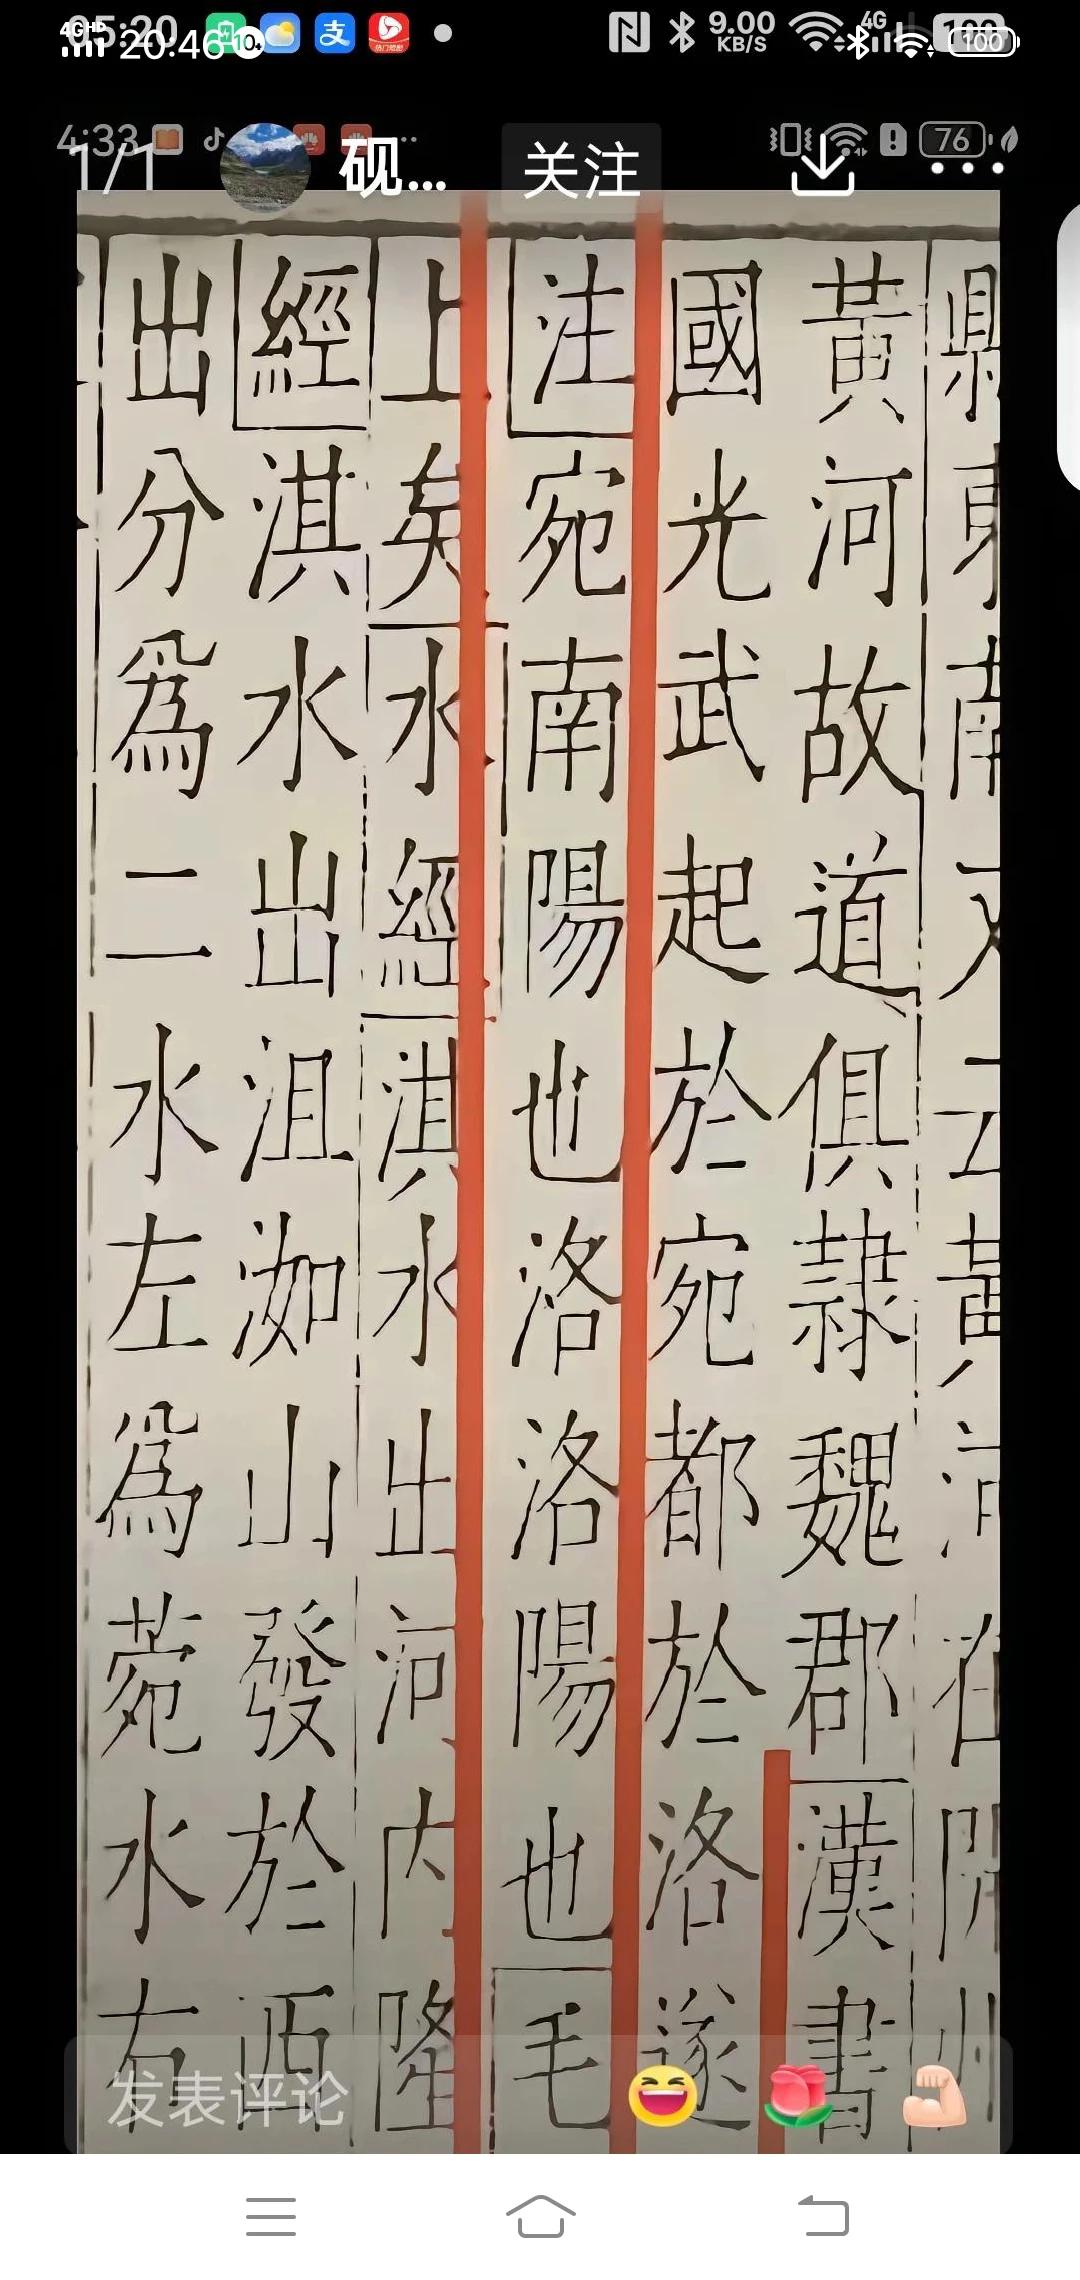 05:20
20:46
9.00 KB/S
4G
100
4:33
76
1/1
砚...
关注
縣東南又云黃河在開州
黃河故道俱隸魏郡漢書
國光武起於宛都於洛遂
注宛南陽也洛洛陽也毛
上矣水經淇水出河內隆
經淇水出沮洳山發於西
出分為二水左為菀水右
发表评论